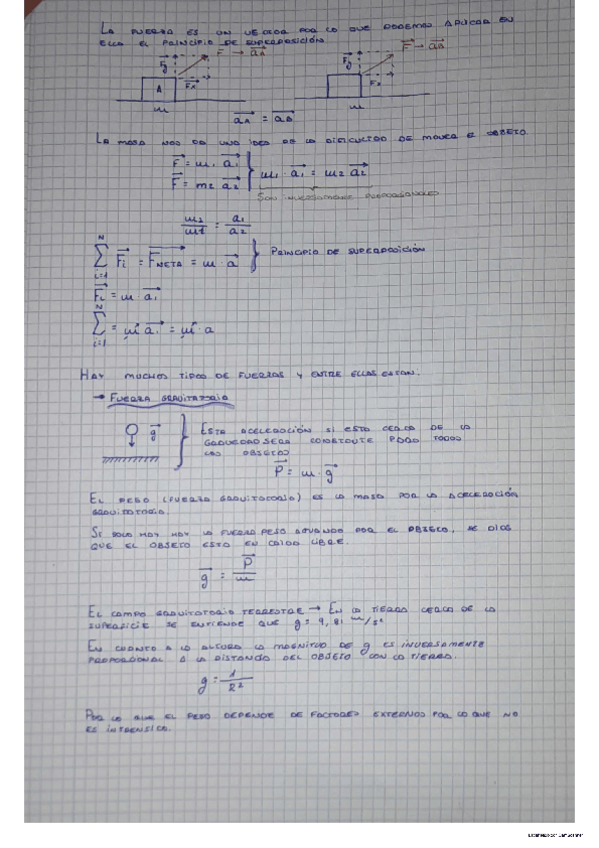 La fuerza es un vector por lo que podemos aplicar en
ella el principio de superposición
Fy F → aA Fy F → aB
A Fx Fx
m m
aA = aB
La masa nos da una idea de la dificultad de mover el objeto
F = m1 · a1
F = m2 a2
m1 · a1 = m2 a2
Son inversamente proporcionales
m2/m1 = a1/a2
N
∑ Fi = FNETA = m · a } Principio de superposición
i=1
Fi = m · ai
N
∑ = m ai = m · a
i=1
Hay muchos tipos de fuerzas y entre ellas están.
→ Fuerza gravitatoria
g
Esta aceleración si esta cerca de la
gravedad sera constante para todos
los objetos
P = m · g
El peso (fuerza gravitatoria) es la masa por la aceleración
gravitatoria.
Si solo hay la fuerza peso actuando por el objeto, se dice
que el objeto esta en caida libre.
g = P/m
El campo gravitatorio terrestre → En la tierra cerca de la
superficie se entiende que g = 9,81 m/s²
En cuanto a la altura la magnitud de g es inversamente
proporcional a la distancia del objeto con la tierra.
g = 1/R²
Por lo que el peso depende de factores externos por lo que no
es intrensico.